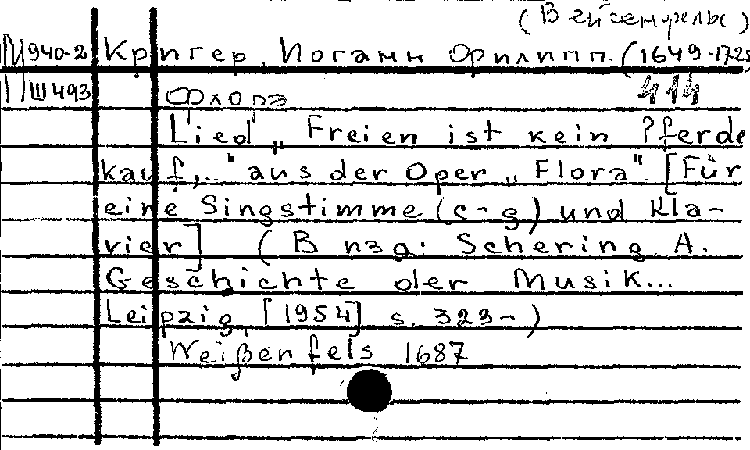 (Вейсенфельс)
940-2 Кригер, Иоганн Филипп. (1649-1725
Ш493 414
Флора
Lied „Freien ist kein Pferde
kauf,.." aus der Oper „Flora" [Für
eine Singstimme (c-g) und Kla-
vier] (В изд: Schering A.
Geschichte der Musik...
Leipzig, [1954] s. 323-)
Weißenfels 1687